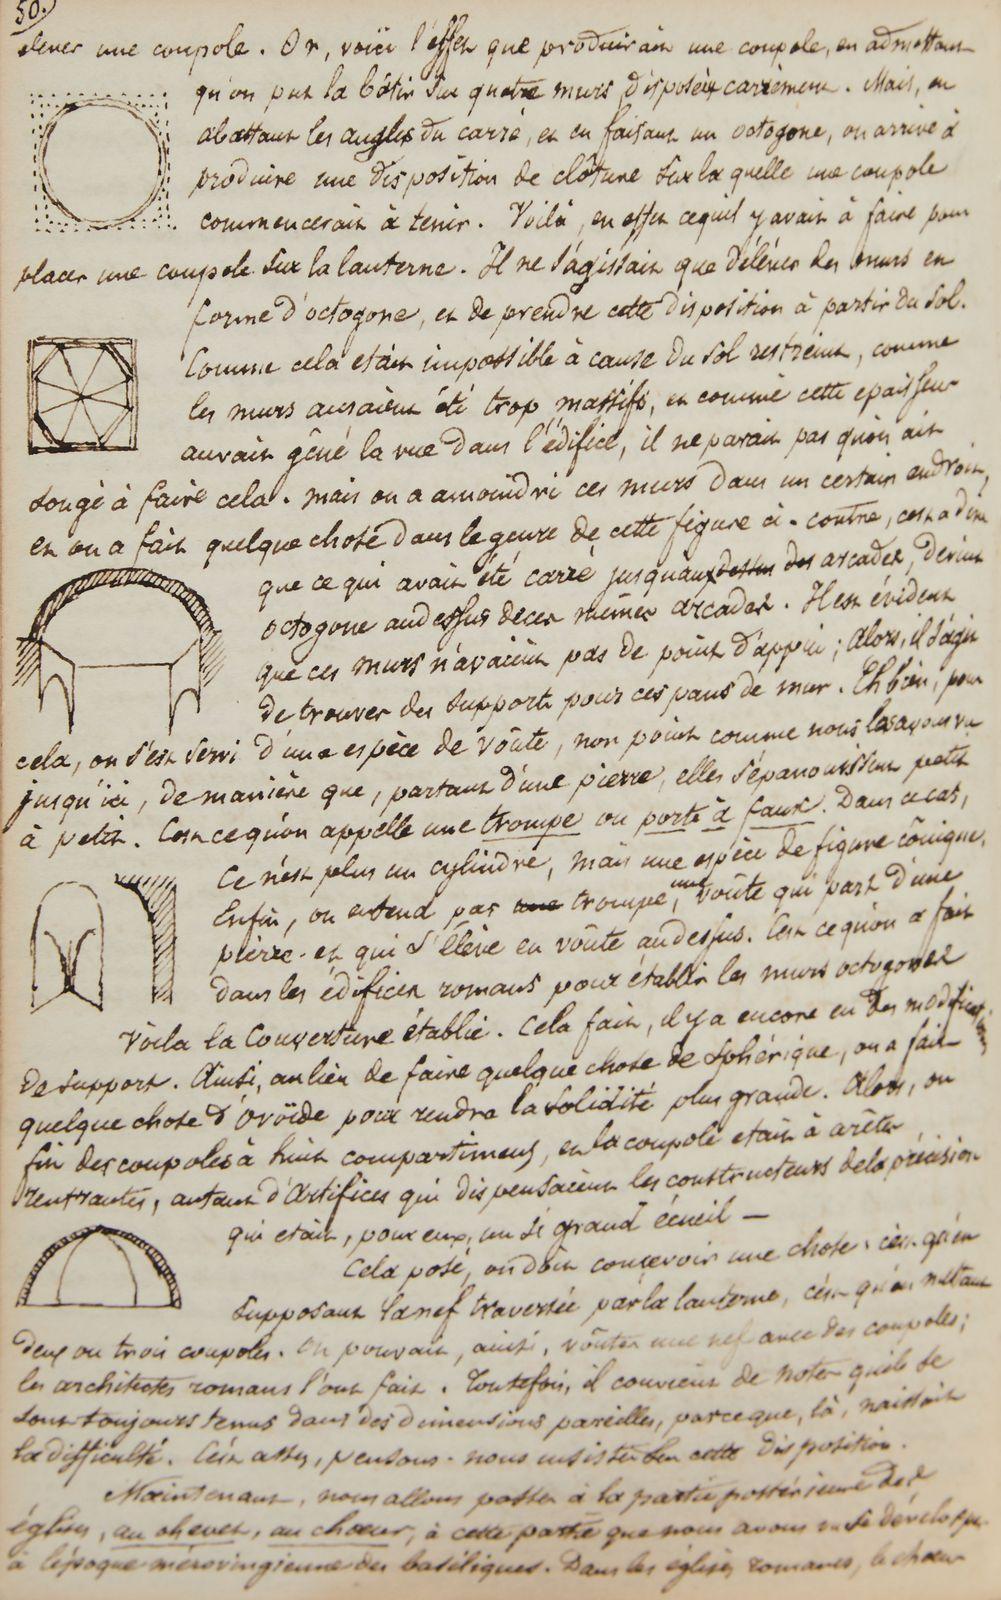 50.
elever une coupole. Or, voici l'effet que produirait une coupole, en admettant
qu'on put la bâtir sur quatre murs disposés carrément. Mais, en
abattant les angles du carré, et en faisant un octogone, on arrive à
produire une disposition de clôture sur laquelle une coupole
commencerait à tenir. Voilà, en effet ce qu'il y avait à faire pour
placer une coupole sur la lanterne. Il ne s'agissait que d'élever des murs en
forme d'octogone, et de prendre cette disposition à partir du sol.
Comme cela etait impossible à cause du sol restreint, comme
les murs auraient été trop massifs, et comme cette epaisseur
aurait gêné la vue dans l'édifice, il ne parait pas qu'on ait
songé à faire cela. mais on a amoindri ces murs dans un certain endroit,
et on a fait quelque chose dans le genre de cette figure ci-contre, c'est a dire
que ce qui avait été carré jusqu'aux dessus des arcades, devint
octogone audessus de ces mêmes arcades. Il est évident
que ces murs n'avaient pas de point d'appui; alors, il s'agit
de trouver des supports pour ces pans de mur. Eh bien, pour
cela, on s'est servi d'une espèce de voûte, non point comme nous les avons vu
jusqu'ici, de manière que, partant d'une pierre, elles s'épanouissent petit
à petit. C'est ce qu'on appelle une trompe ou porte à faux. Dans ce cas,
Ce n'est plus un cylindre, mais une espèce de figure cônique.
Enfin, on entend par une trompe, une voûte qui part d'une
pierre et qui s'élève en voûte au dessus. C'est ce qu'on a fait
dans les édifices romans pour établir les murs octogones
Voila la Couverture établie. Cela fait, il y a encore eu des modifications
de support. Ainsi, au lieu de faire quelque chose de sphérique, on a fait
quelque chose d'ovoïde pour rendre la solidité plus grande. Alors, on
fit des coupoles à huit compartimens, et la coupole etait à arêtes
rentrantes, autant d'artifices qui dispensaient les constructeurs de la précision
qui etait, pour eux, un si grand écueil —
Cela posé, on doit concevoir une chose, c'est qu'en
supposant la nef traversée par la lanterne, c'est qu'en mettant
deux ou trois coupoles. On pouvait, ainsi, voûter une nef avec des coupoles;
les architectes romans l'ont fait. Toutefois, il convient de noter qu'ils se
sont toujours tenus dans des dimensions pareilles, parceque, là, naissait
la difficulté. C'est assez, pensons-nous insister sur cette disposition.
Maintenant, nous allons passer à la partie postérieure des
églises, au chevet, au chœur, à cette partie que nous avons vu se développer
a l'époque mérovingienne des basiliques. Dans les églises romanes, le chœur